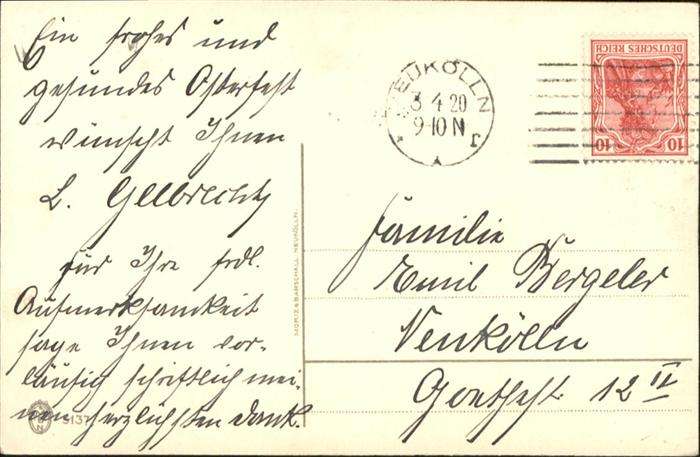 Ein frohes und
gesundes Osterfest
wünscht Ihnen
L. Gellbrecht
für Ihre frdl.
Aufmerksamkeit
sage Ihnen vor-
läufig schriftlich mei-
nen herzlichsten Dank.
5137
MORITZ & BARSCHALL, NEUKÖLLN.
NEUKÖLLN
3 4 20
9-10 N
* r
DEUTSCHES REICH
10 10
Familie
Emil Bergeler
Neukölln
Goethest. 12 IV